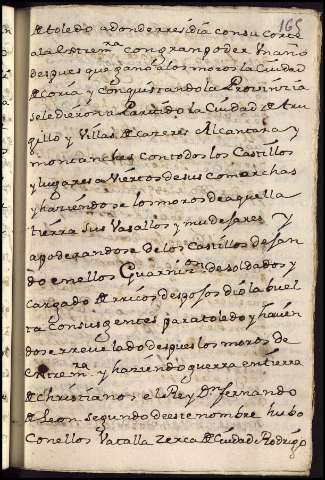 165
de toledo adonde rresidia con su corte
a la Extrem.ra con gran poder Un año
despues que ganó a los moros la Ciudad
de Coria y conquistando la Provinzia
se le dieron a Partido la Ciudad de tru
gillo y Villas de Cazeres Alcantara y
montanches con todos los Castillos
y lugares aViertos de sus comarchas
y haziendose los moros de aquella
tierra sus Vasallos y mudejares y
apoderandose de los Castillos dejan
do en ellos Guarniz.on de soldados y
cargado de rricos despojos dió la buel
ta con sus gentes para toledo y havien
dose rrevelado despues los moros de
Extrem.ra y haziendo guerra en tierra
de Christianos el Rey Dn fernando
de Leon segundo de este nombre hubo
Con ellos Vatalla Zerca de Ciudad Rodrigo